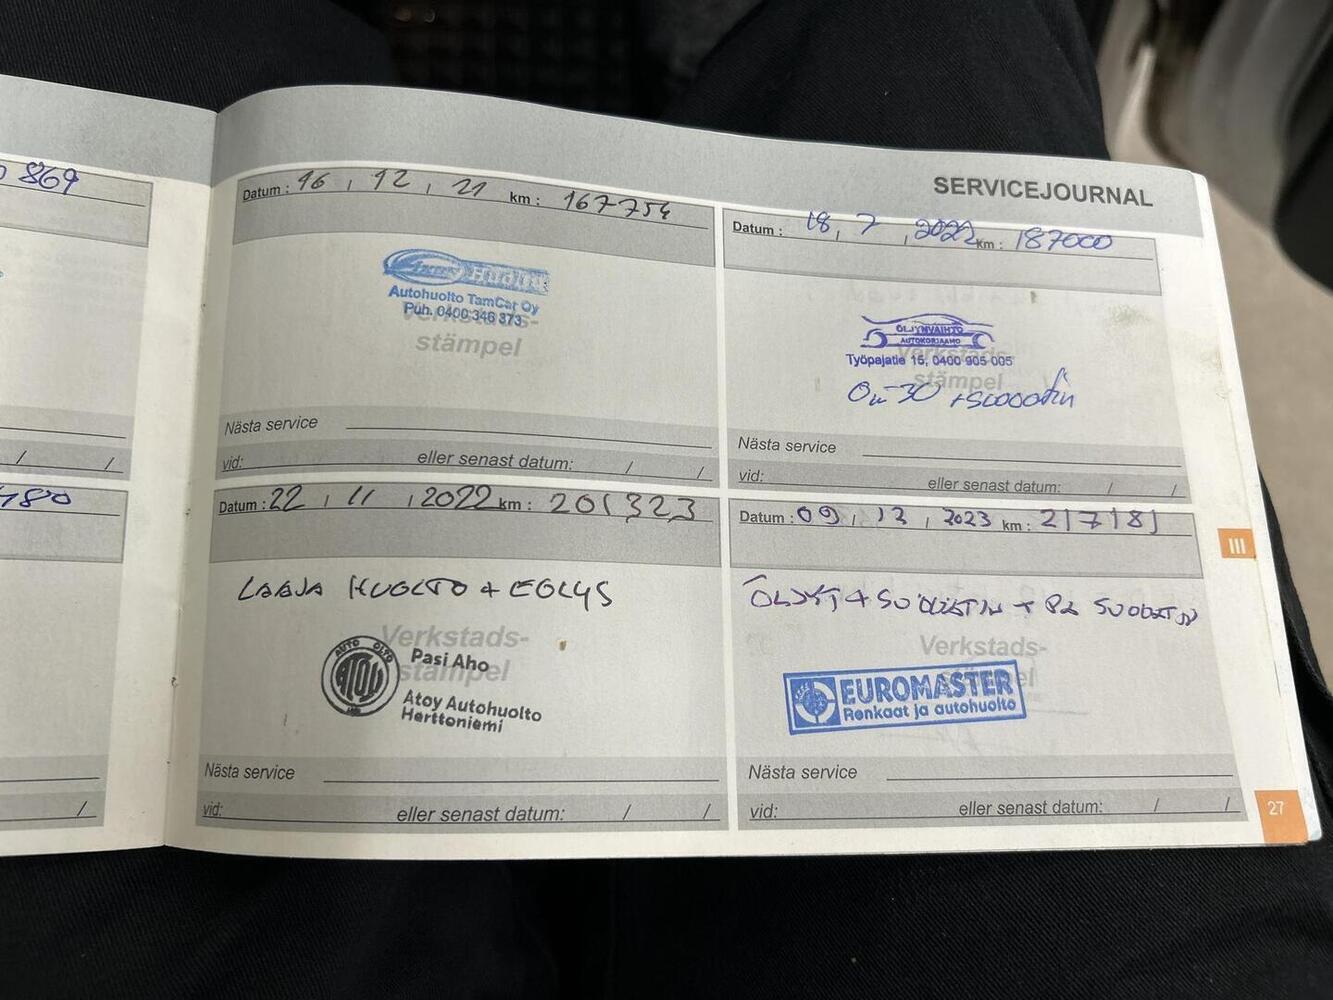 869
480
SERVICEJOURNAL
Datum : 16 , 12 , 21 km : 167754
Huolto
Autohuolto TamCar Oy
Puh. 0400 346 373
Verkstads-
stämpel
Nästa service
vid: eller senast datum: / /
Datum : 18 , 7 , 2022 km : 187000
ÖLJYNVAIHTO
AUTOKORJAAMO
Työpajatie 15, 0400 905 005
Verkstads-
stämpel
0w-30 +suodatin
Nästa service
vid: eller senast datum: / /
Datum : 22 , 11 , 2022 km : 201323
LAAJA HUOLTO +
Verkstads-
stämpel
AUTO OLTO
ATOY
Pasi Aho
Atoy Autohuolto
Herttoniemi
Nästa service
vid: eller senast datum: / /
Datum : 09 , 12 , 2023 km : 217181
ÖLJYT + SUODATIN + PA SUODATIN
Verkstads-
EUROMASTER
Renkaat ja autohuolto
Nästa service
vid: eller senast datum: / /
III
27